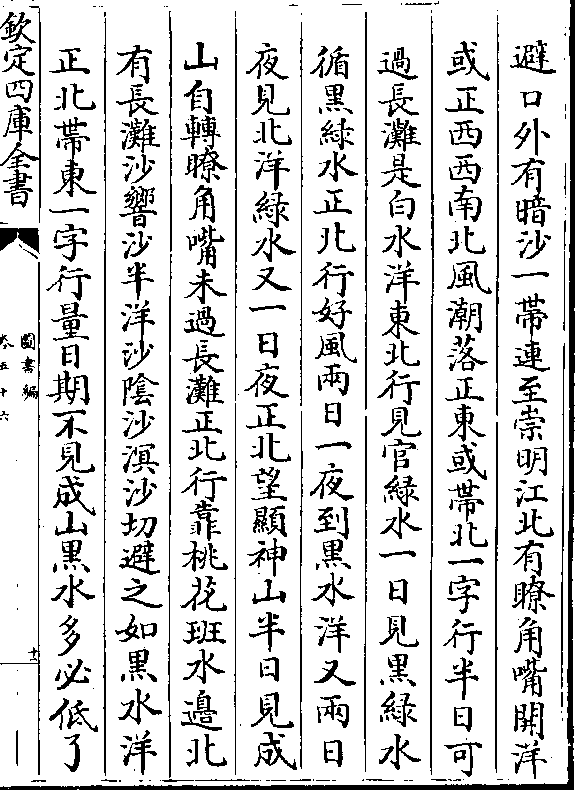 避口外有暗沙一帶連至崇明江北有瞭角嘴開洋
或正西西南北風潮落正東或帶北一字行半日可
過長灘是白水洋東北行見官綠水一日見黑綠水
循黑綠水正北行好風兩日一夜到黑水洋又兩日
夜見北洋綠水又一日夜正北望顯神山半日見成
山自轉瞭角嘴未過長灘正北行靠桃花班水邉北
有長灘沙響沙半洋沙陰沙溟沙切避之如黑水洋
正北帶東一字行量日期不見成山黑水多必低了
欽定四庫全書
圖書編
卷五十六
十